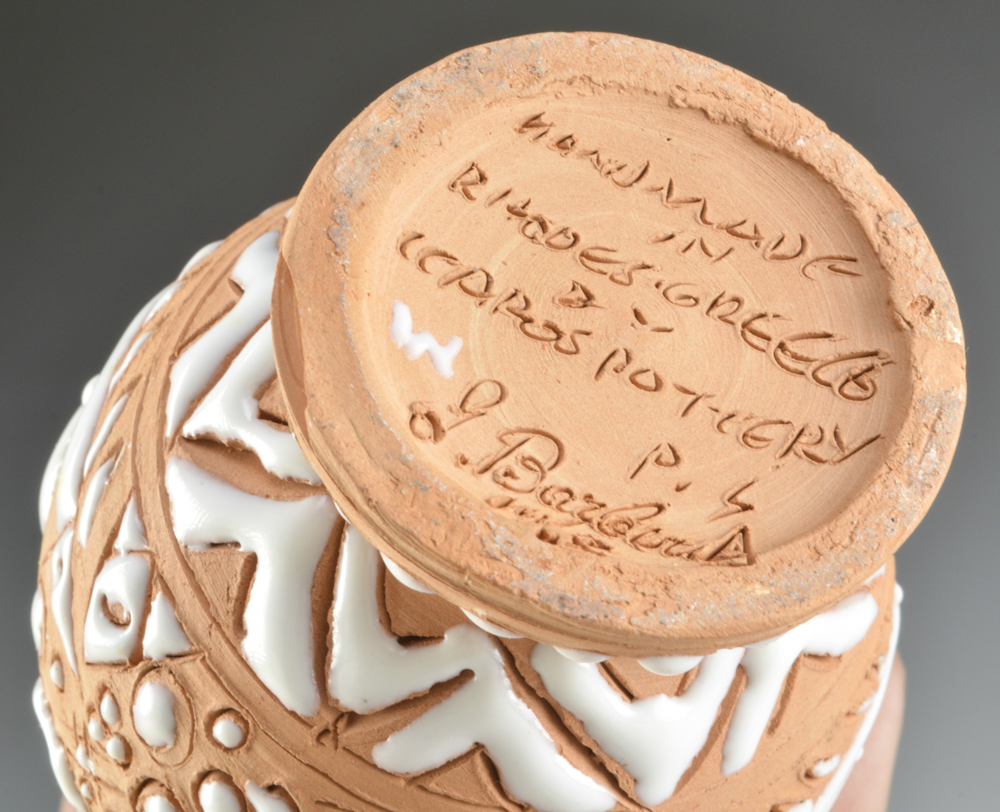 HANDMADE
IN
RHODES.GREECE
BY
ICAROS POTTERY
P.